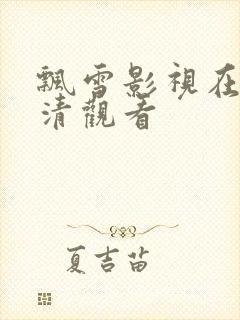 飄雪影視在
清觀看
夏吉苗